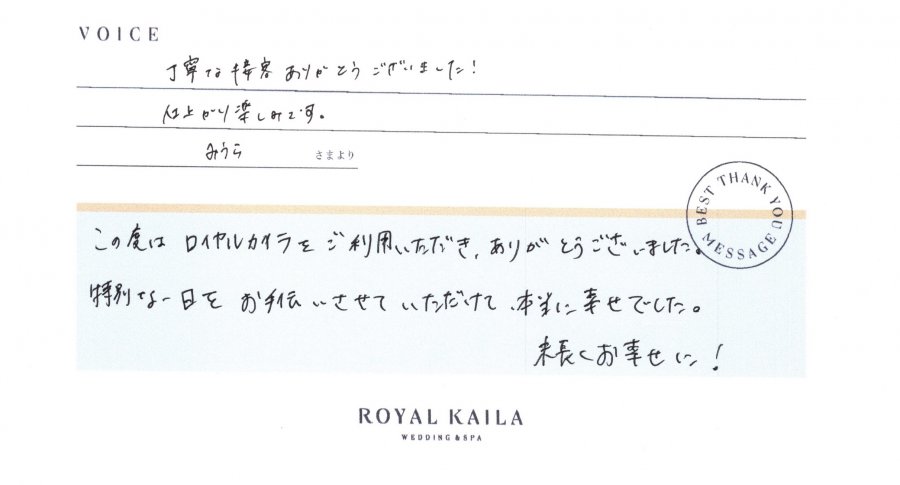 VOICE
丁寧な接客ありがとうございました!
仕上がり楽しみです。
みうら さまより
BEST THANK YOU MESSAGE
この度はロイヤルカイラをご利用いただき、ありがとうございました。
特別な一日をお手伝いさせていただけて、本当に幸せでした。
末長くお幸せに!
ROYAL KAILA
WEDDING & SPA